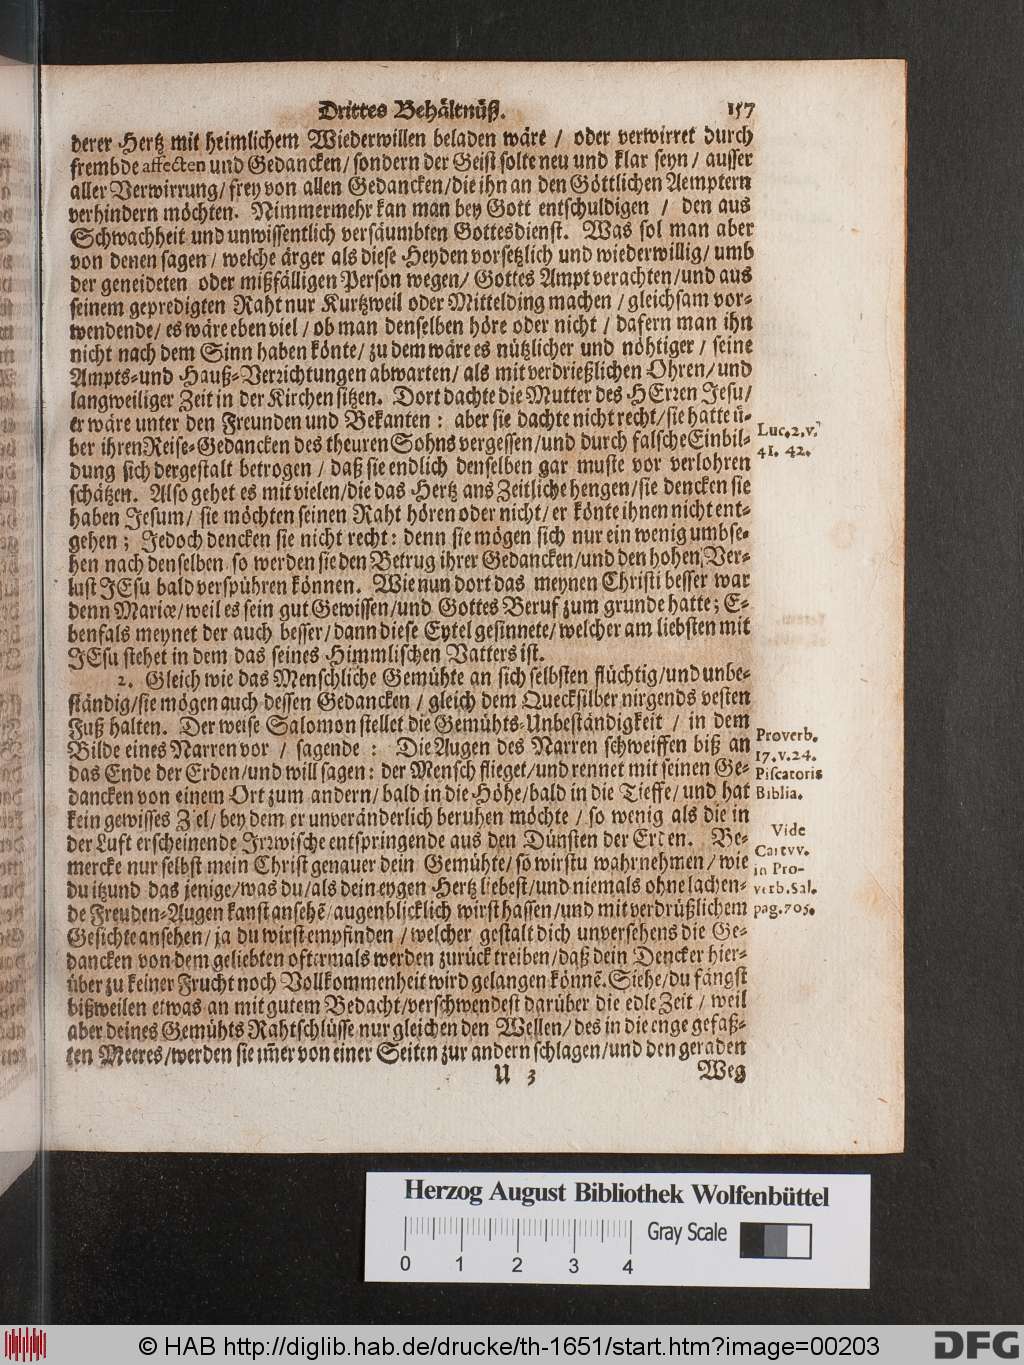 Drittes Behältnüß. 157
derer Hertz mit heimlichem Wiederwillen beladen wäre / oder verwirret durch
frembde affecten und Gedancken / sondern der Geist solte neu und klar seyn / ausser
aller Verwirrung / frey von allen Gedancken / die ihn an den Göttlichen Aemptern
verhindern möchten. Nimmermehr kan man bey Gott entschuldigen / den aus
Schwachheit und unwissentlich versäumbten Gottesdienst. Was sol man aber
von denen sagen / welche ärger als diese Heyden vorsetzlich und wiederwillig / umb
der geneideten oder mißfälligen Person wegen / Gottes Ampt verachten / und aus
seinem gepredigten Raht nur Kurtzweil oder Mittelding machen / gleichsam vor-
wendende / es wäre eben viel / ob man denselben höre oder nicht / dafern man ihn
nicht nach dem Sinn haben könte / zu dem wäre es nützlicher und nöhtiger / seine
Ampts- und Hauß-Verrichtungen abwarten / als mit verdrießlichen Ohren / und
langweiliger Zeit in der Kirchen sitzen. Dort dachte die Mutter des HErren Jesu /
er wäre unter den Freunden und Bekanten : aber sie dachte nicht recht / sie hatte ü-
ber ihren Reise-Gedancken des theuren Sohns vergessen / und durch falsche Einbil-
dung sich dergestalt betrogen / daß sie endlich denselben gar muste vor verlohren
schätzen. Also gehet es mit vielen / die das Hertz ans Zeitliche hengen / sie dencken sie
haben Jesum / sie möchten seinen Raht hören oder nicht / er könte ihnen nicht ent-
gehen ; Jedoch dencken sie nicht recht : denn sie mögen sich nur ein wenig umbse-
hen nach denselben so werden sie den Betrug ihrer Gedancken / und den hohen Ver-
lust JEsu bald verspühren können. Wie nun dort das meynen Christi besser war
denn Mariæ / weil es sein gut Gewissen / und Gottes Beruf zum grunde hatte ; E-
benfals meynet der auch besser / dann diese Eytel gesinnete / welcher am liebsten mit
JEsu stehet in dem das seines Himmlischen Vatters ist.
Luc. 2. v.
41. 42.
2. Gleich wie das Menschliche Gemühte an sich selbsten flüchtig / und unbe-
ständig / sie mögen auch dessen Gedancken / gleich dem Quecksilber nirgends vesten
Fuß halten. Der weise Salomon stellet die Gemühts-Unbeständigkeit / in dem
Bilde eines Narren vor / sagende : Die Augen des Narren schweiffen biß an
das Ende der Erden / und will sagen : der Mensch flieget / und rennet mit seinen Ge-
dancken von einem Ort zum andern / bald in die Höhe / bald in die Tieffe / und hat
kein gewisses Ziel / bey dem er unveränderlich beruhen möchte / so wenig als die in
der Luft erscheinende Irrwische entspringende aus den Dünsten der Erden. Be-
mercke nur selbst mein Christ genauer dein Gemühte / so wirstu wahrnehmen / wie
du itzund das jenige / was du / als dein eygen Hertz liebest / und niemals ohne lachen-
de Freuden-Augen kanst ansehẽ / augenblicklich wirst hassen / und mit verdrüßlichem
Gesichte ansehen / ja du wirst empfinden / welcher gestalt dich unversehens die Ge-
dancken von dem geliebten oftermals werden zurück treiben / daß dein Dencker hier-
über zu keiner Frucht noch Vollkommenheit wird gelangen könnẽ. Siehe / du fängst
bißweilen etwas an mit gutem Bedacht / verschwendest darüber die edle Zeit / weil
aber deines Gemühts Rahtschlüsse nur gleichen den Wellen / des in die enge gefaß-
ten Meeres / werden sie im̃er von einer Seiten zur andern schlagen / und den geraden
Proverb.
17. v. 24.
Piscatoris
Biblia.
Vide
Cartvv.
in Pro-
verb. Sal.
pag. 705.
U 3 Weg
Herzog August Bibliothek Wolfenbüttel
Gray Scale
0 1 2 3 4
© HAB http://diglib.hab.de/drucke/th-1651/start.htm?image=00203
DFG